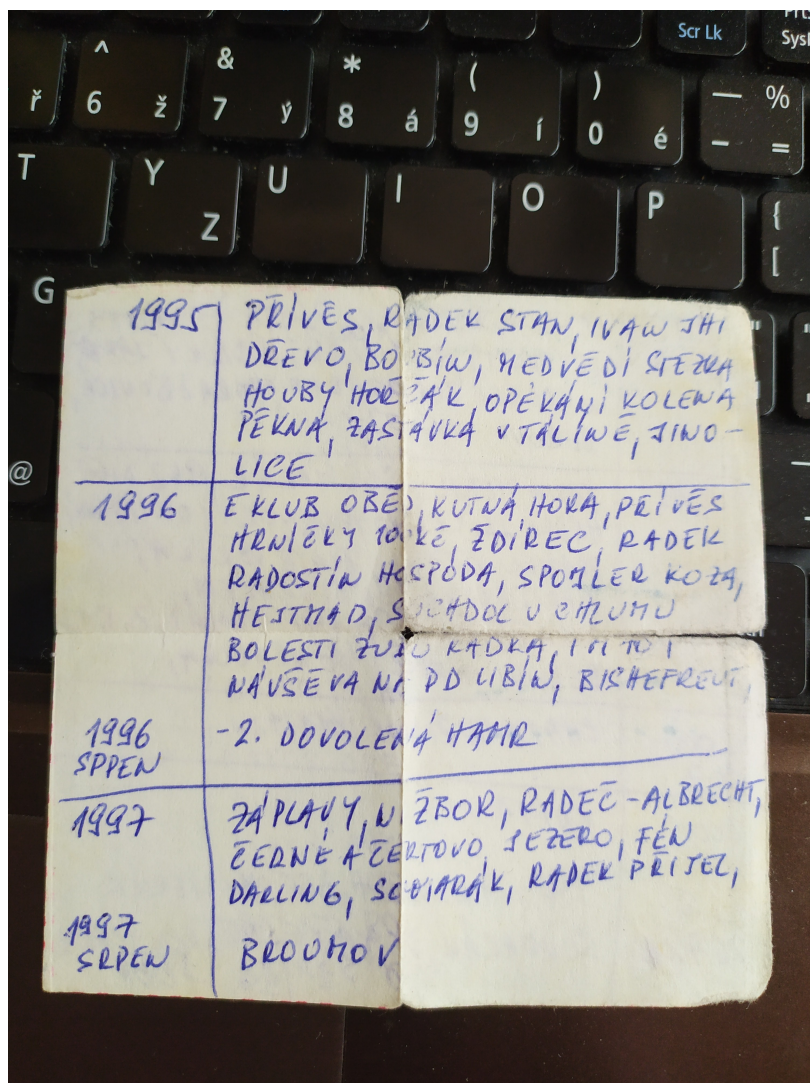 Scr Lk
^ & * ( ) — %
ř 6 ž 7 ý 8 á 9 í 0 é - =
T Y Z U I O P { [
G
@
1995 PŘÍVĚS, RADEK STAN, IVAN
DŘEVO, BOUBÍN, MEDVĚDÍ STEZKA
HOUBY HOŘČÁK, OPÉKÁNÍ KOLENA
PĚKNÁ, ZASTÁVKA V TÁLÍNĚ, JINO-
LICE
1996 EKLUB OBĚD, KUTNÁ HORA, PŘÍVĚS
HRNÍČKY 100KČ, ŽDÍREC, RADEK
RADOSTÍN HOSPODA, KOZA,
SUCHDOL U CHLUMU
BOLESTI ZUBŮ RADKA,
NÁVŠĚVA NA PD LIBÍN,
1996 -2. DOVOLENÁ HAMR
SPPEN
1997 ZÁPLAVY, NIŽBOR, RADEČ-ALBRECHT,
ČERNÉ A ČERTOVO JEZERO, FÉN
DARLING, RADEK PŘIJEL,
1997
SRPEN BROUMOV